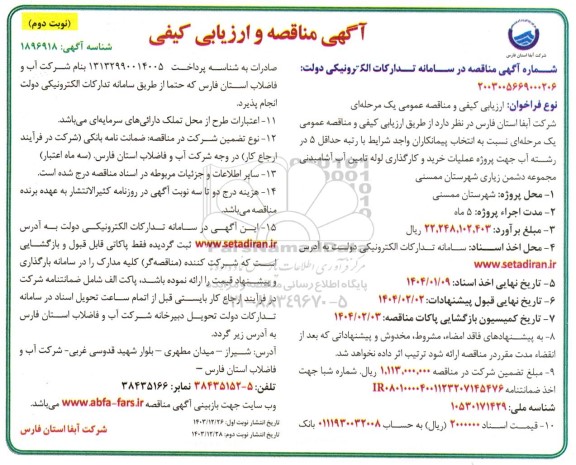 (نوبت دوم)
آگهی مناقصه و ارزیابی کیفی
شناسه آگهی: ۱۸۹۶۹۱۸
شرکت آبفا استان فارس
شماره آگهی مناقصه در سامانه تدارکات الکترونیکی دولت:
۲۰۰۳۰۰۵۶۶۹۰۰۰۲۰۶
نوع فراخوان: ارزیابی کیفی و مناقصه عمومی یک مرحله‌ای
شرکت آبفا استان فارس در نظر دارد از طریق ارزیابی کیفی و مناقصه عمومی
یک مرحله‌ای نسبت به انتخاب پیمانکاران واجد شرایط با رتبه حداقل ۵ در
رشته آب جهت پروژه عملیات خرید و کارگذاری لوله تامین آب آشامیدنی
مجموعه دشمن زیاری شهرستان ممسنی
۱- محل پروژه: شهرستان ممسنی
۲- مدت اجراء پروژه: ۵ ماه
۳- مبلغ برآورد: ۲۲,۲۴۸,۱۰۲,۴۰۳ ریال
۴- محل اخذ اسناد: سامانه تدارکات الکترونیکی دولت به آدرس
www.setadiran.ir
۵- تاریخ نهایی اخذ اسناد: ۱۴۰۴/۰۱/۰۹
۶- تاریخ نهایی قبول پیشنهادات: ۱۴۰۴/۰۲/۰۲
۷- تاریخ کمیسیون بازگشایی پاکات مناقصه: ۱۴۰۴/۰۲/۰۳
۸- به پیشنهادهای فاقد امضاء، مشروط، مخدوش و پیشنهاداتی که بعد از
انقضاء مدت مقرر در مناقصه ارائه شود ترتیب اثر داده نخواهد شد.
۹- مبلغ تضمین شرکت در مناقصه ۱,۱۱۳,۰۰۰,۰۰۰ ریال. شماره شبا جهت
اخذ ضمانتنامه IR۰۸۰۱۰۰۰۰۴۰۰۱۱۲۳۲۰۷۱۴۵۴۷۶
شناسه ملی: ۱۰۵۳۰۱۷۱۴۲۹
۱۰- قیمت اسناد ۲۰۰۰۰۰۰ (ریال) به حساب ۰۱۱۱۹۳۰۰۳۲۰۰۸ بانک
صادرات به شناسه پرداخت ۱۳۱۳۲۹۹۰۰۱۴۰۰۵ بنام شرکت آب و
فاضلاب استان فارس که حتما از طریق سامانه تدارکات الکترونیکی دولت
انجام پذیرد.
۱۱- اعتبارات طرح از محل تملک دارائی‌های سرمایه‌ای می‌باشد.
۱۲- نوع تضمین شرکت در مناقصه: ضمانت نامه بانکی (شرکت در فرآیند
ارجاع کار) در وجه شرکت آب و فاضلاب استان فارس. (سه ماه اعتبار)
۱۳- سایر اطلاعات و جزئیات مربوطه در اسناد مناقصه درج شده است.
۱۴- هزینه درج دو تا سه نوبت آگهی در روزنامه کثیرالانتشار به عهده برنده
مناقصه می‌باشد.
۱۵- این آگهی در سامانه تدارکات الکترونیکی دولت به آدرس
www.setadiran.ir ثبت گردیده فقط پاکاتی قابل قبول و بازگشایی
است که شرکت کننده (مناقصه‌گر) کلیه مدارک را در سامانه بارگذاری
و پیشنهاد قیمت را ارائه نموده باشد، پاکت الف شامل ضمانتنامه شرکت
در فرآیند ارجاع کار بایستی قبل از اتمام ساعت تحویل اسناد در سامانه
تدارکات دولت تحویل دبیرخانه شرکت آب و فاضلاب استان فارس
به آدرس زیر گردد.
آدرس: شیراز – میدان مطهری – بلوار شهید قدوسی غربی- شرکت آب و
فاضلاب استان فارس –
تلفن: ۵-۳۸۴۳۵۱۵۲ نمابر: ۳۸۴۳۵۱۶۶
وب سایت جهت بازبینی آگهی مناقصه www.abfa-fars.ir می‌باشد.
تاریخ انتشار نوبت اول: ۱۴۰۳/۱۲/۲۶
تاریخ انتشار نوبت دوم: ۱۴۰۳/۱۲/۲۸
شرکت آبفا استان فارس